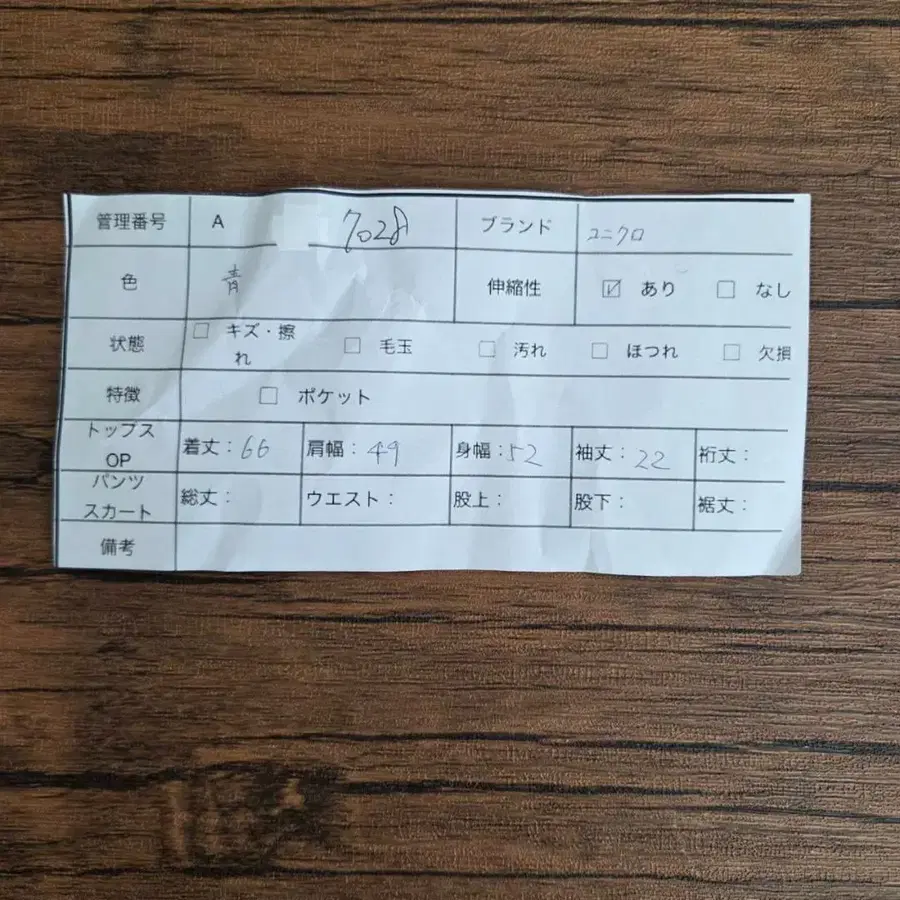 管理番号 A 7028 ブランド ユニクロ
色 青 伸縮性 ☑ あり ☐ なし
状態 ☐ キズ・擦れ ☐ 毛玉 ☐ 汚れ ☐ ほつれ ☐ 欠損
特徴 ☐ ポケット
トップス OP 着丈：66 肩幅：49 身幅：52 袖丈：22 裄丈：
パンツ スカート 総丈： ウエスト： 股上： 股下： 裾丈：
備考